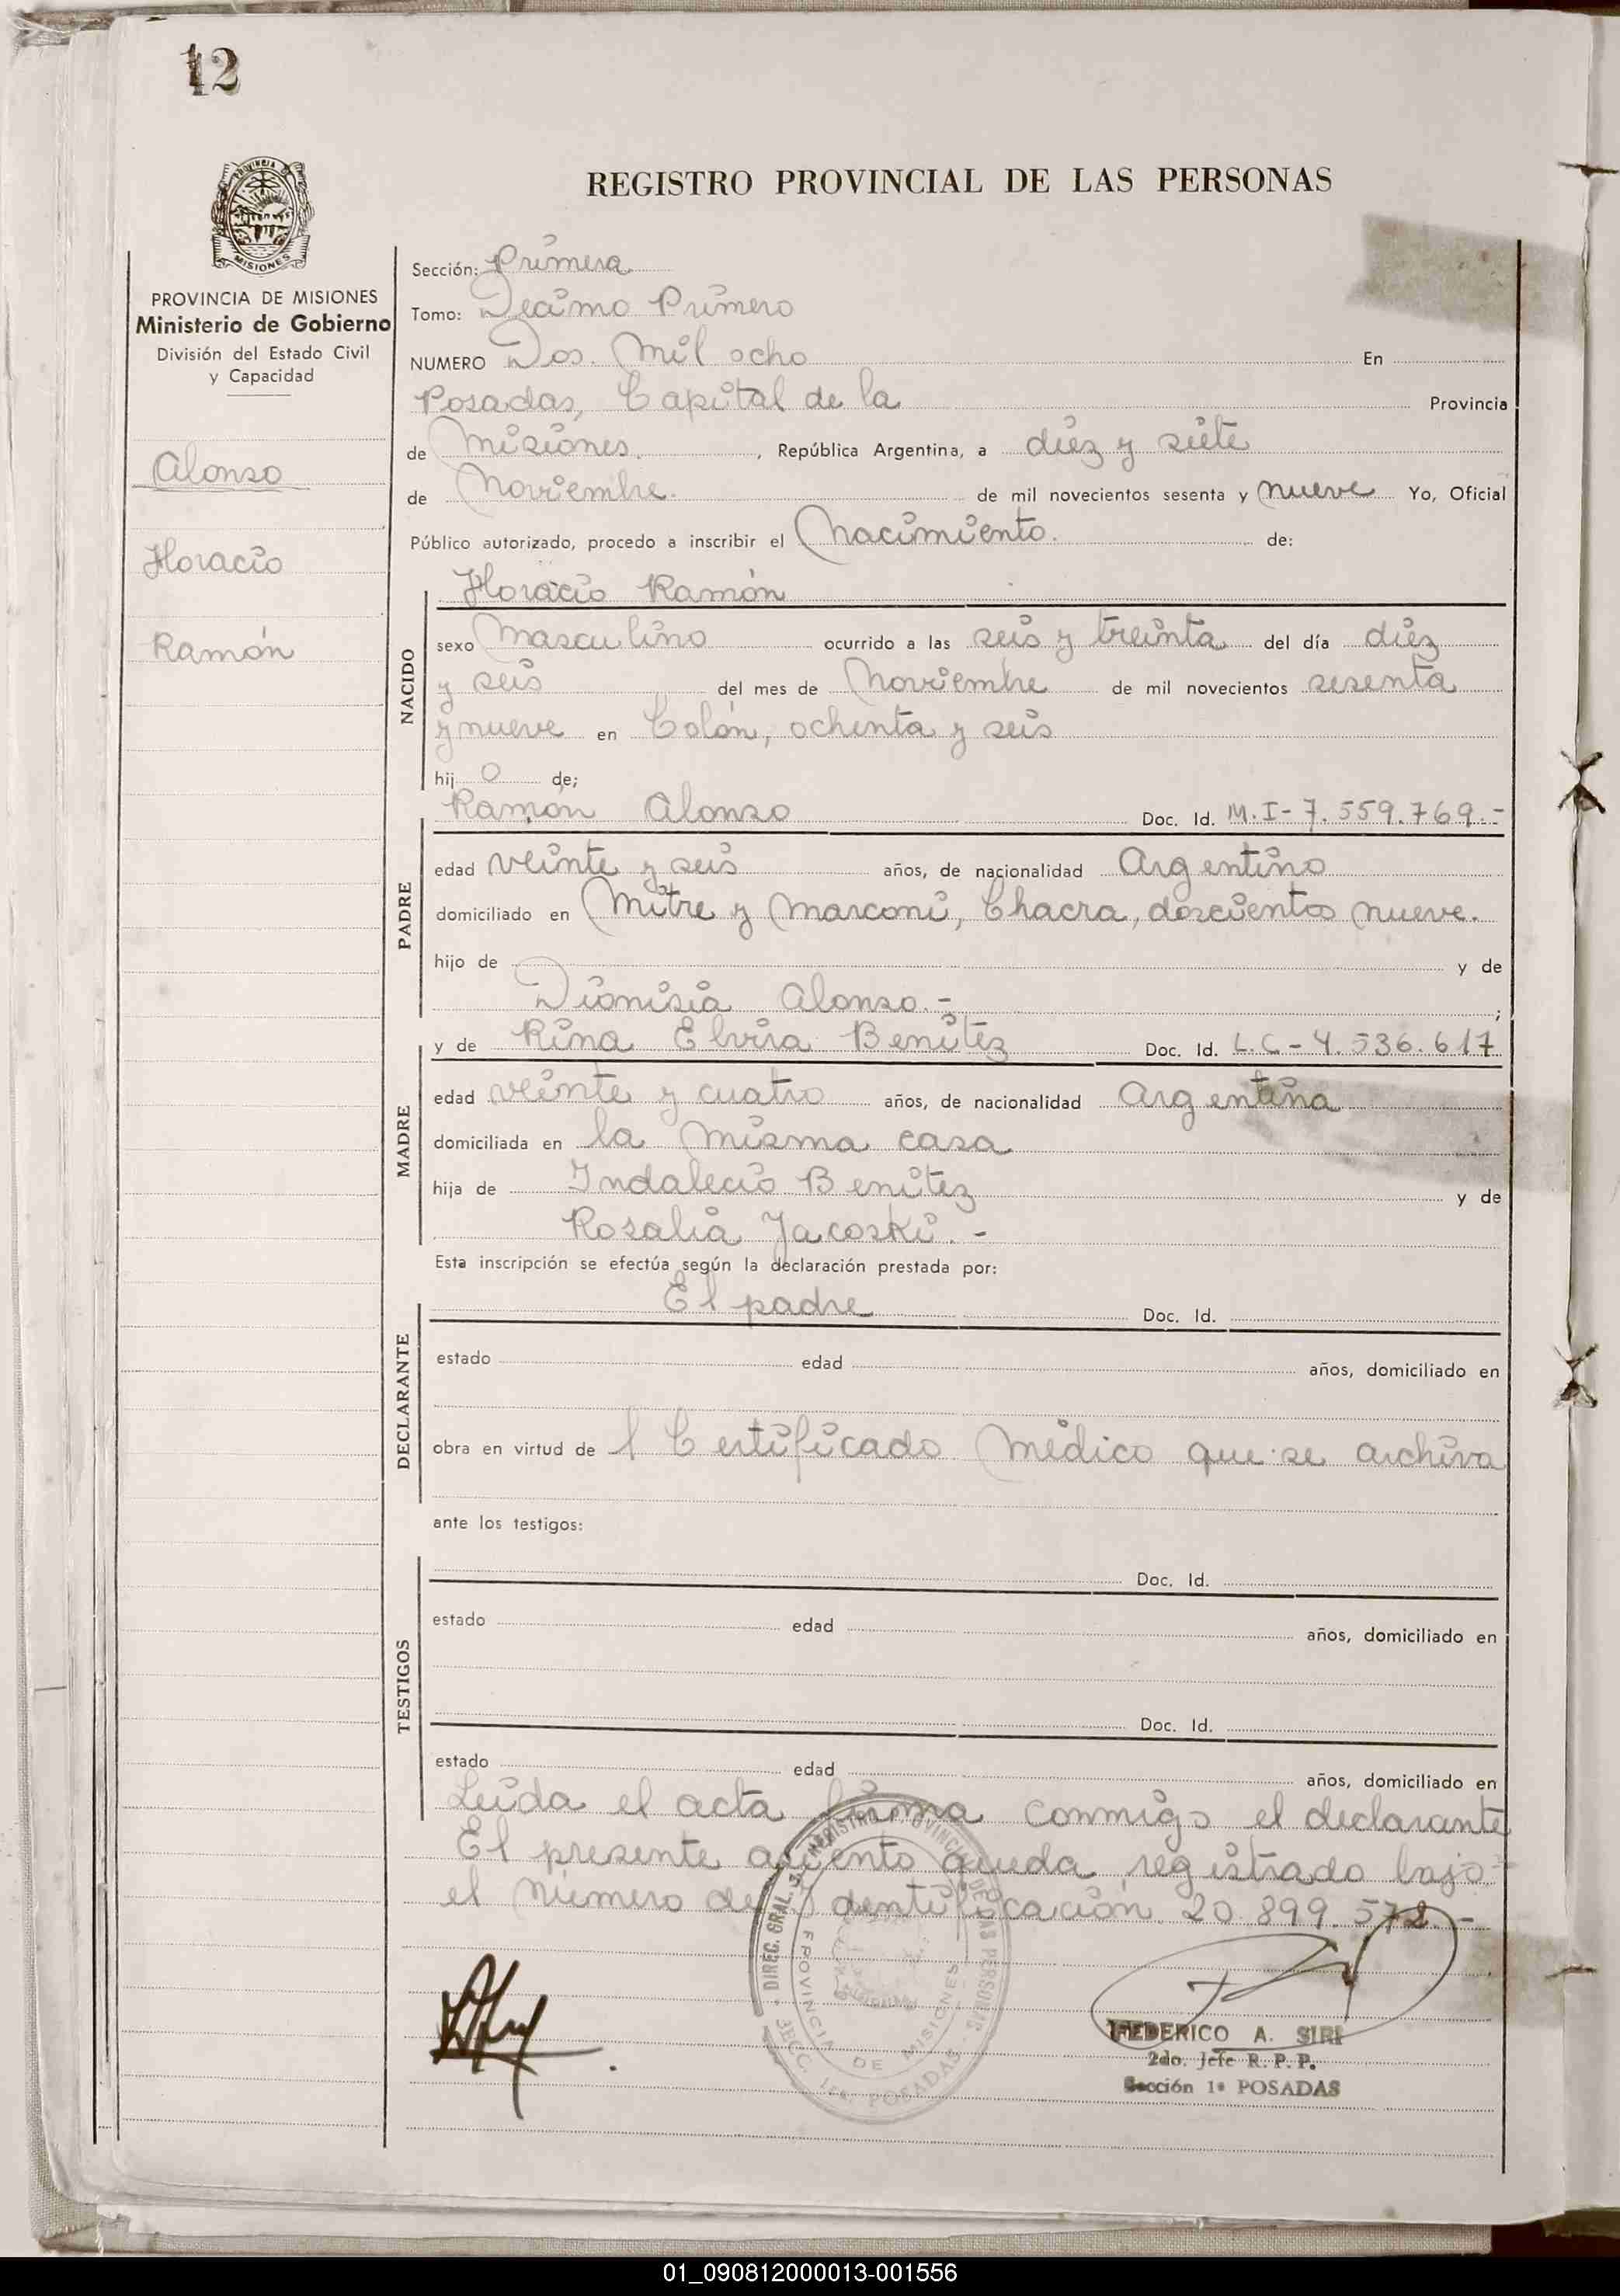 12
PROVINCIA DE MISIONES
Ministerio de Gobierno
División del Estado Civil
y Capacidad
Alonso
Horacio
Ramón
REGISTRO PROVINCIAL DE LAS PERSONAS
Sección: Primera
Tomo: Decimo Primero
NUMERO Dos. Mil ocho En
Posadas, Capital de la Provincia
de Misiones. , República Argentina, a diez y siete
de Noviembre. de mil novecientos sesenta y nueve Yo, Oficial
Público autorizado, procedo a inscribir el Nacimiento. de:
NACIDO
Horacio Ramón
sexo Masculino ocurrido a las seis y treinta del día diez
y seis del mes de Noviembre de mil novecientos sesenta
y nueve en Colón, ochenta y seis
hij o de;
PADRE
Ramón Alonso Doc. Id. M.I-7.559.769.-
edad veinte y seis años, de nacionalidad Argentino
domiciliado en Mitre y Marconi, Chacra, doscientos nueve.
hijo de y de
Dionisia Alonso.- ;
MADRE
y de Rina Elvira Benítez Doc. Id. L.C-4.536.617
edad veinte y cuatro años, de nacionalidad Argentina
domiciliada en la misma casa
hija de Indalecio Benítez y de
Rosalia Jacoski.-
Esta inscripción se efectúa según la declaración prestada por:
DECLARANTE
El padre Doc. Id.
estado edad años, domiciliado en
obra en virtud de l Certificado Médico que se archiva
ante los testigos:
TESTIGOS
Doc. Id.
estado edad años, domiciliado en
Doc. Id.
estado edad años, domiciliado en
Leída el acta firma conmigo el declarante
El presente asiento queda registrado bajo
el Número de Identificación 20.899.572.-
PROVINCIA DE MISIONES
SECC. 1ra. POSADAS
FEDERICO A. SIRI
2do. Jefe R. P. P.
Sección 1ª POSADAS
01_090812000013-001556